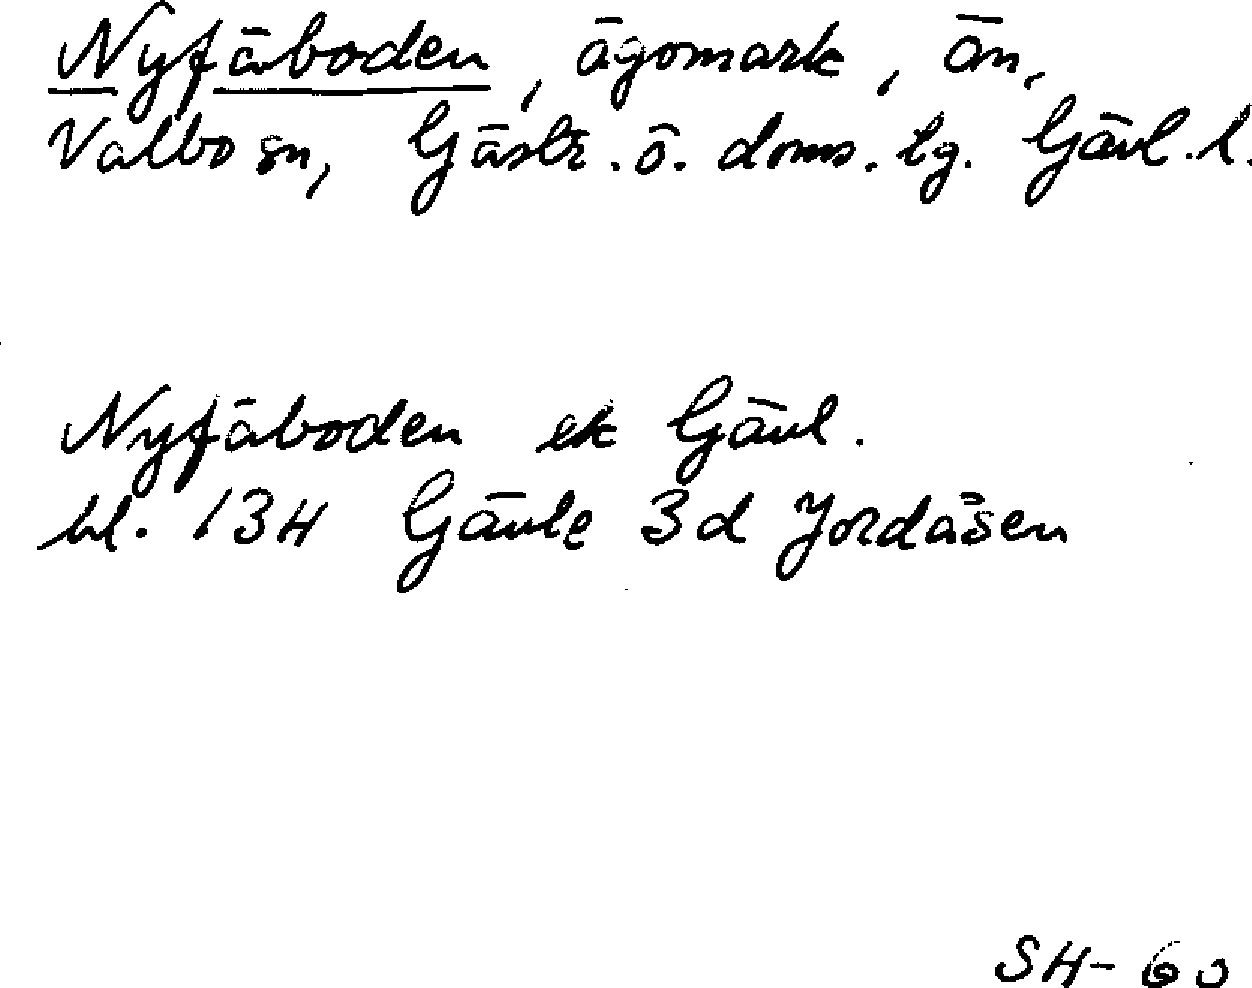 Nyfäboden, ägomark, än,
Valbo sn, Gästr. ö. doms. tg. Gävl. l.
Nyfäboden ek Gävl.
bl. 134 Gävle 3d Jordåsen
SH-60